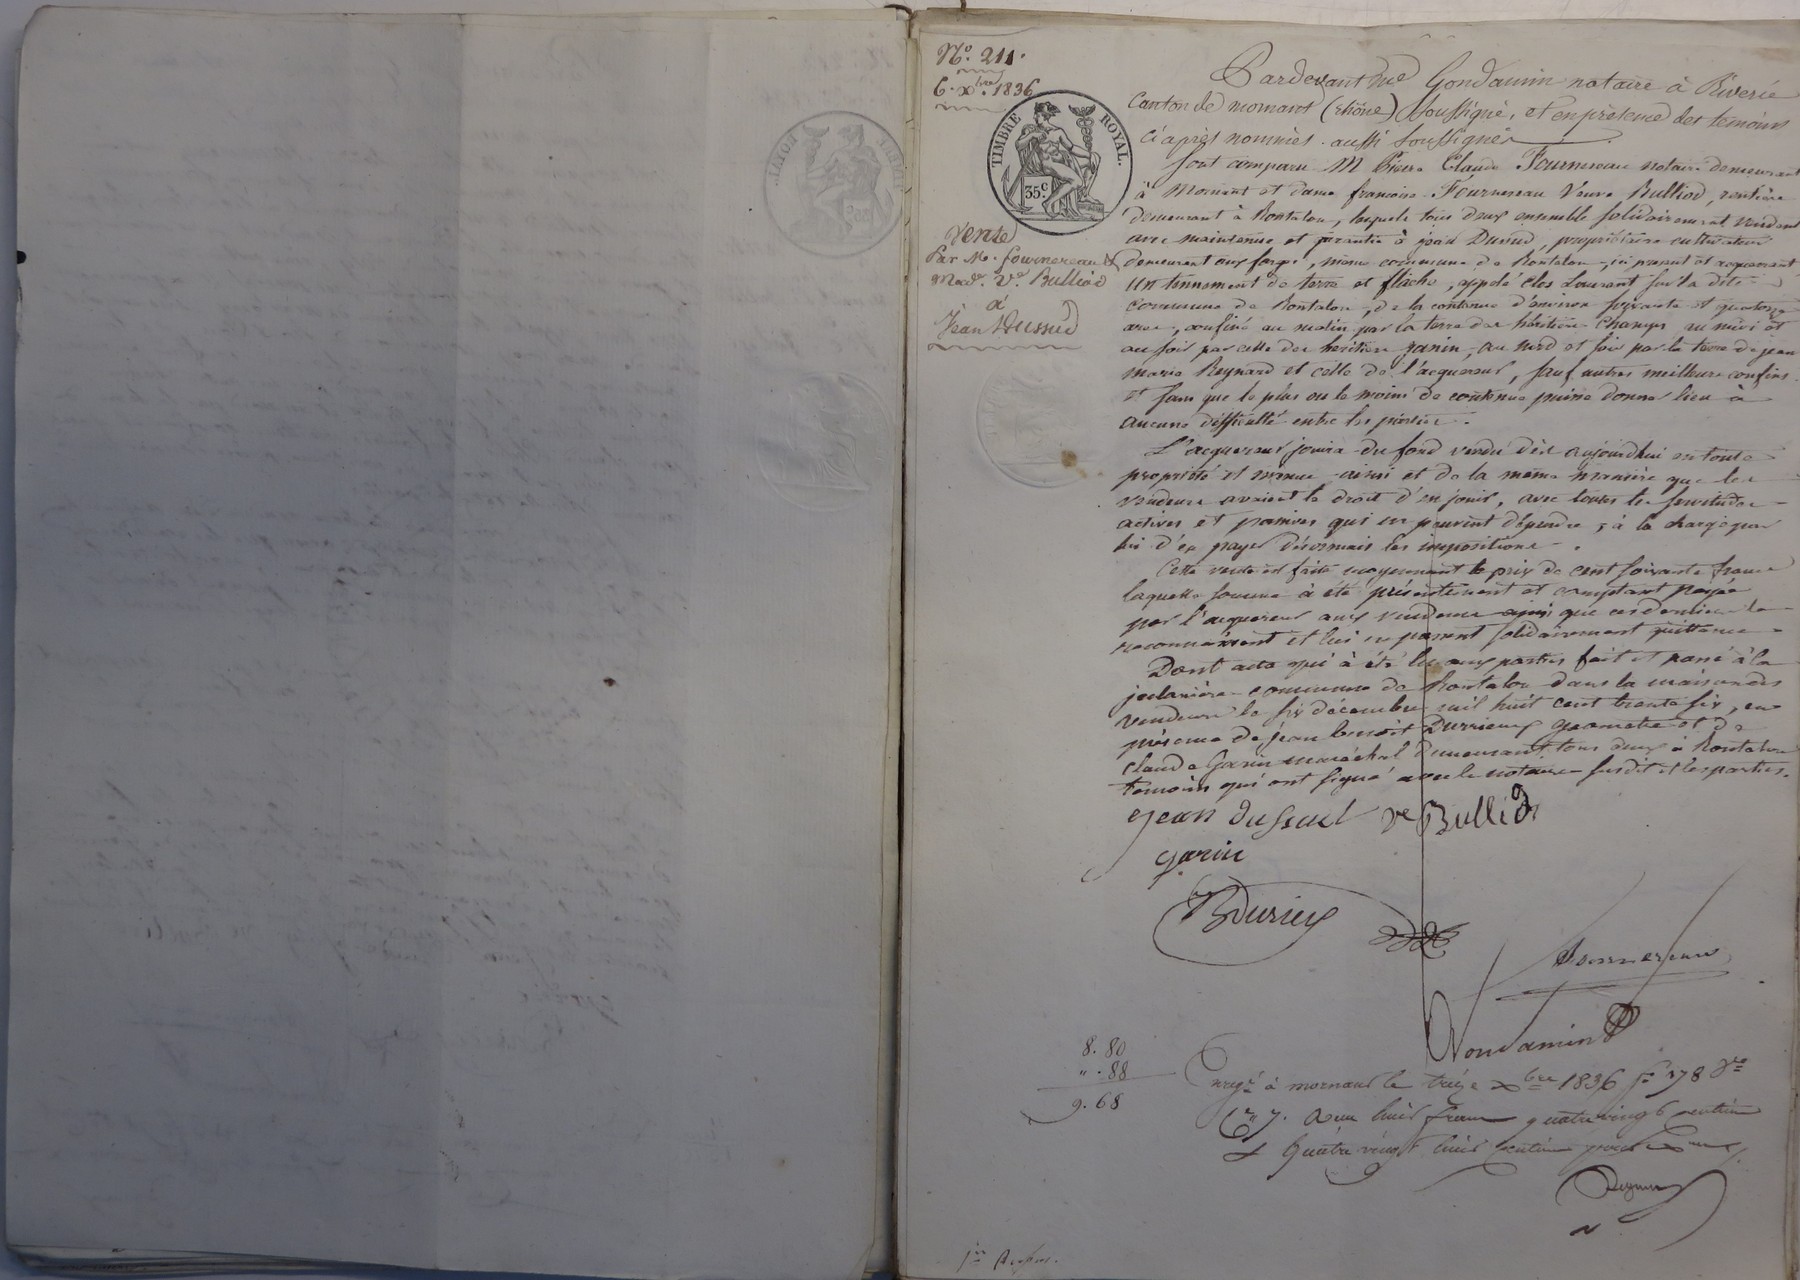 No. 211.
6. Xbre. 1836
TIMBRE ROYAL.
35 c
Vente
Par Me. fournereau &
Made. Ve. Bulliod
à
Jean Dussud
Pardevant Me Gondamin notaire à Riverie
Canton de mornant (rhône) soussigné, et en présence des témoins
ci après nommés aussi soussignés
sont comparu M Pierre Claude Fournereau notaire demeurant
à Mornant et dame francoise Fournereau Veuve Bulliod, rentière
demeurant à Rontalon, lesquels tous deux ensemble solidairement vendent
avec maintenue et garantie à jean Dussud, propriétaire cultivateur
demeurant aux forges, même commune de Rontalon, ici present et acquerant
un tennement de terre et flache, appelé clos Laurent sur la dite
commune de Rontalon, de la contenue d'environ soixante et quatorze
ares, confiné au matin par la terre des héritiers au midi et
au soir par celle des heritiers janin, au nord et soir par la terre de jean
marie Reynard et celle de l'acquereur, sauf autres meilleurs confins
et sans que le plus ou le moins de contenue puisse donner lieu à
aucune difficulté entre les parties.
L'acquereur jouira du fond vendu dès aujourdhui en toute
propriété et revenue ainsi et de la même manière que les
vendeurs avaient le droit d'en jouir, avec toutes les servitudes
actives et passives qui en peuvent dépendre, à la charge par
lui d'en payer désormais les impositions.
Cette vente est faite moyennant le prix de cent soixante francs
laquelle somme à été présentement et comptant payée
par l'acquereur aux vendeurs ainsi que ces derniers le
reconnaissent et lui en passent solidairement quittance
Dont acte qui à été lu aux parties fait et passé à la
commune de Rontalon dans la maison des
vendeurs le six décembre mil huit cent trente six, en
présence de jean benoit Durrieux géometre et de
Claude Garin maréchal demeurant tous deux à Rontalon
témoins qui ont signé avec le notaire susdit et les parties.
jean dussud ve Bulliod
garin
BDurieux
fournereau
Gondamin
8. 80
" . 88
9. 68
Enregé à mornant le treize Xbre 1836 fo 178 Vo
Ce 7. Reçu huit francs quatre vingt centimes
& quatre vingt huit centimes pour